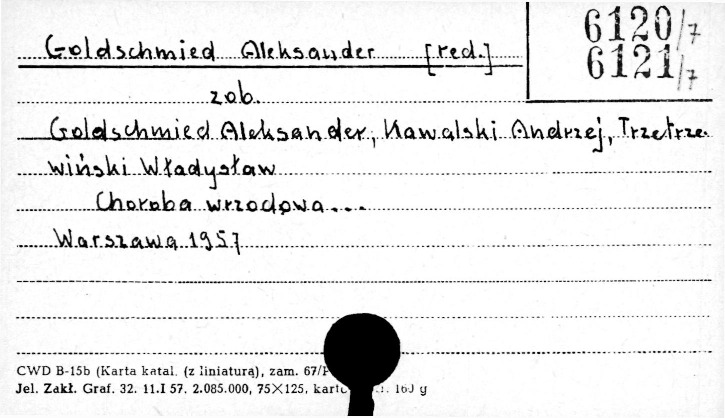 Goldschmied Aleksander [red.]
6120/7
6121/7
zob.
Goldschmied Aleksander, Kawalski Andrzej, Trzetrze-
wiński Władysław
Choroba wrzodowa...
Warszawa 1957
CWD B-15b (Karta katal. (z liniaturą), zam. 67/P
Jel. Zakł. Graf. 32. 11.I 57. 2.085.000, 75×125, karto 160 g